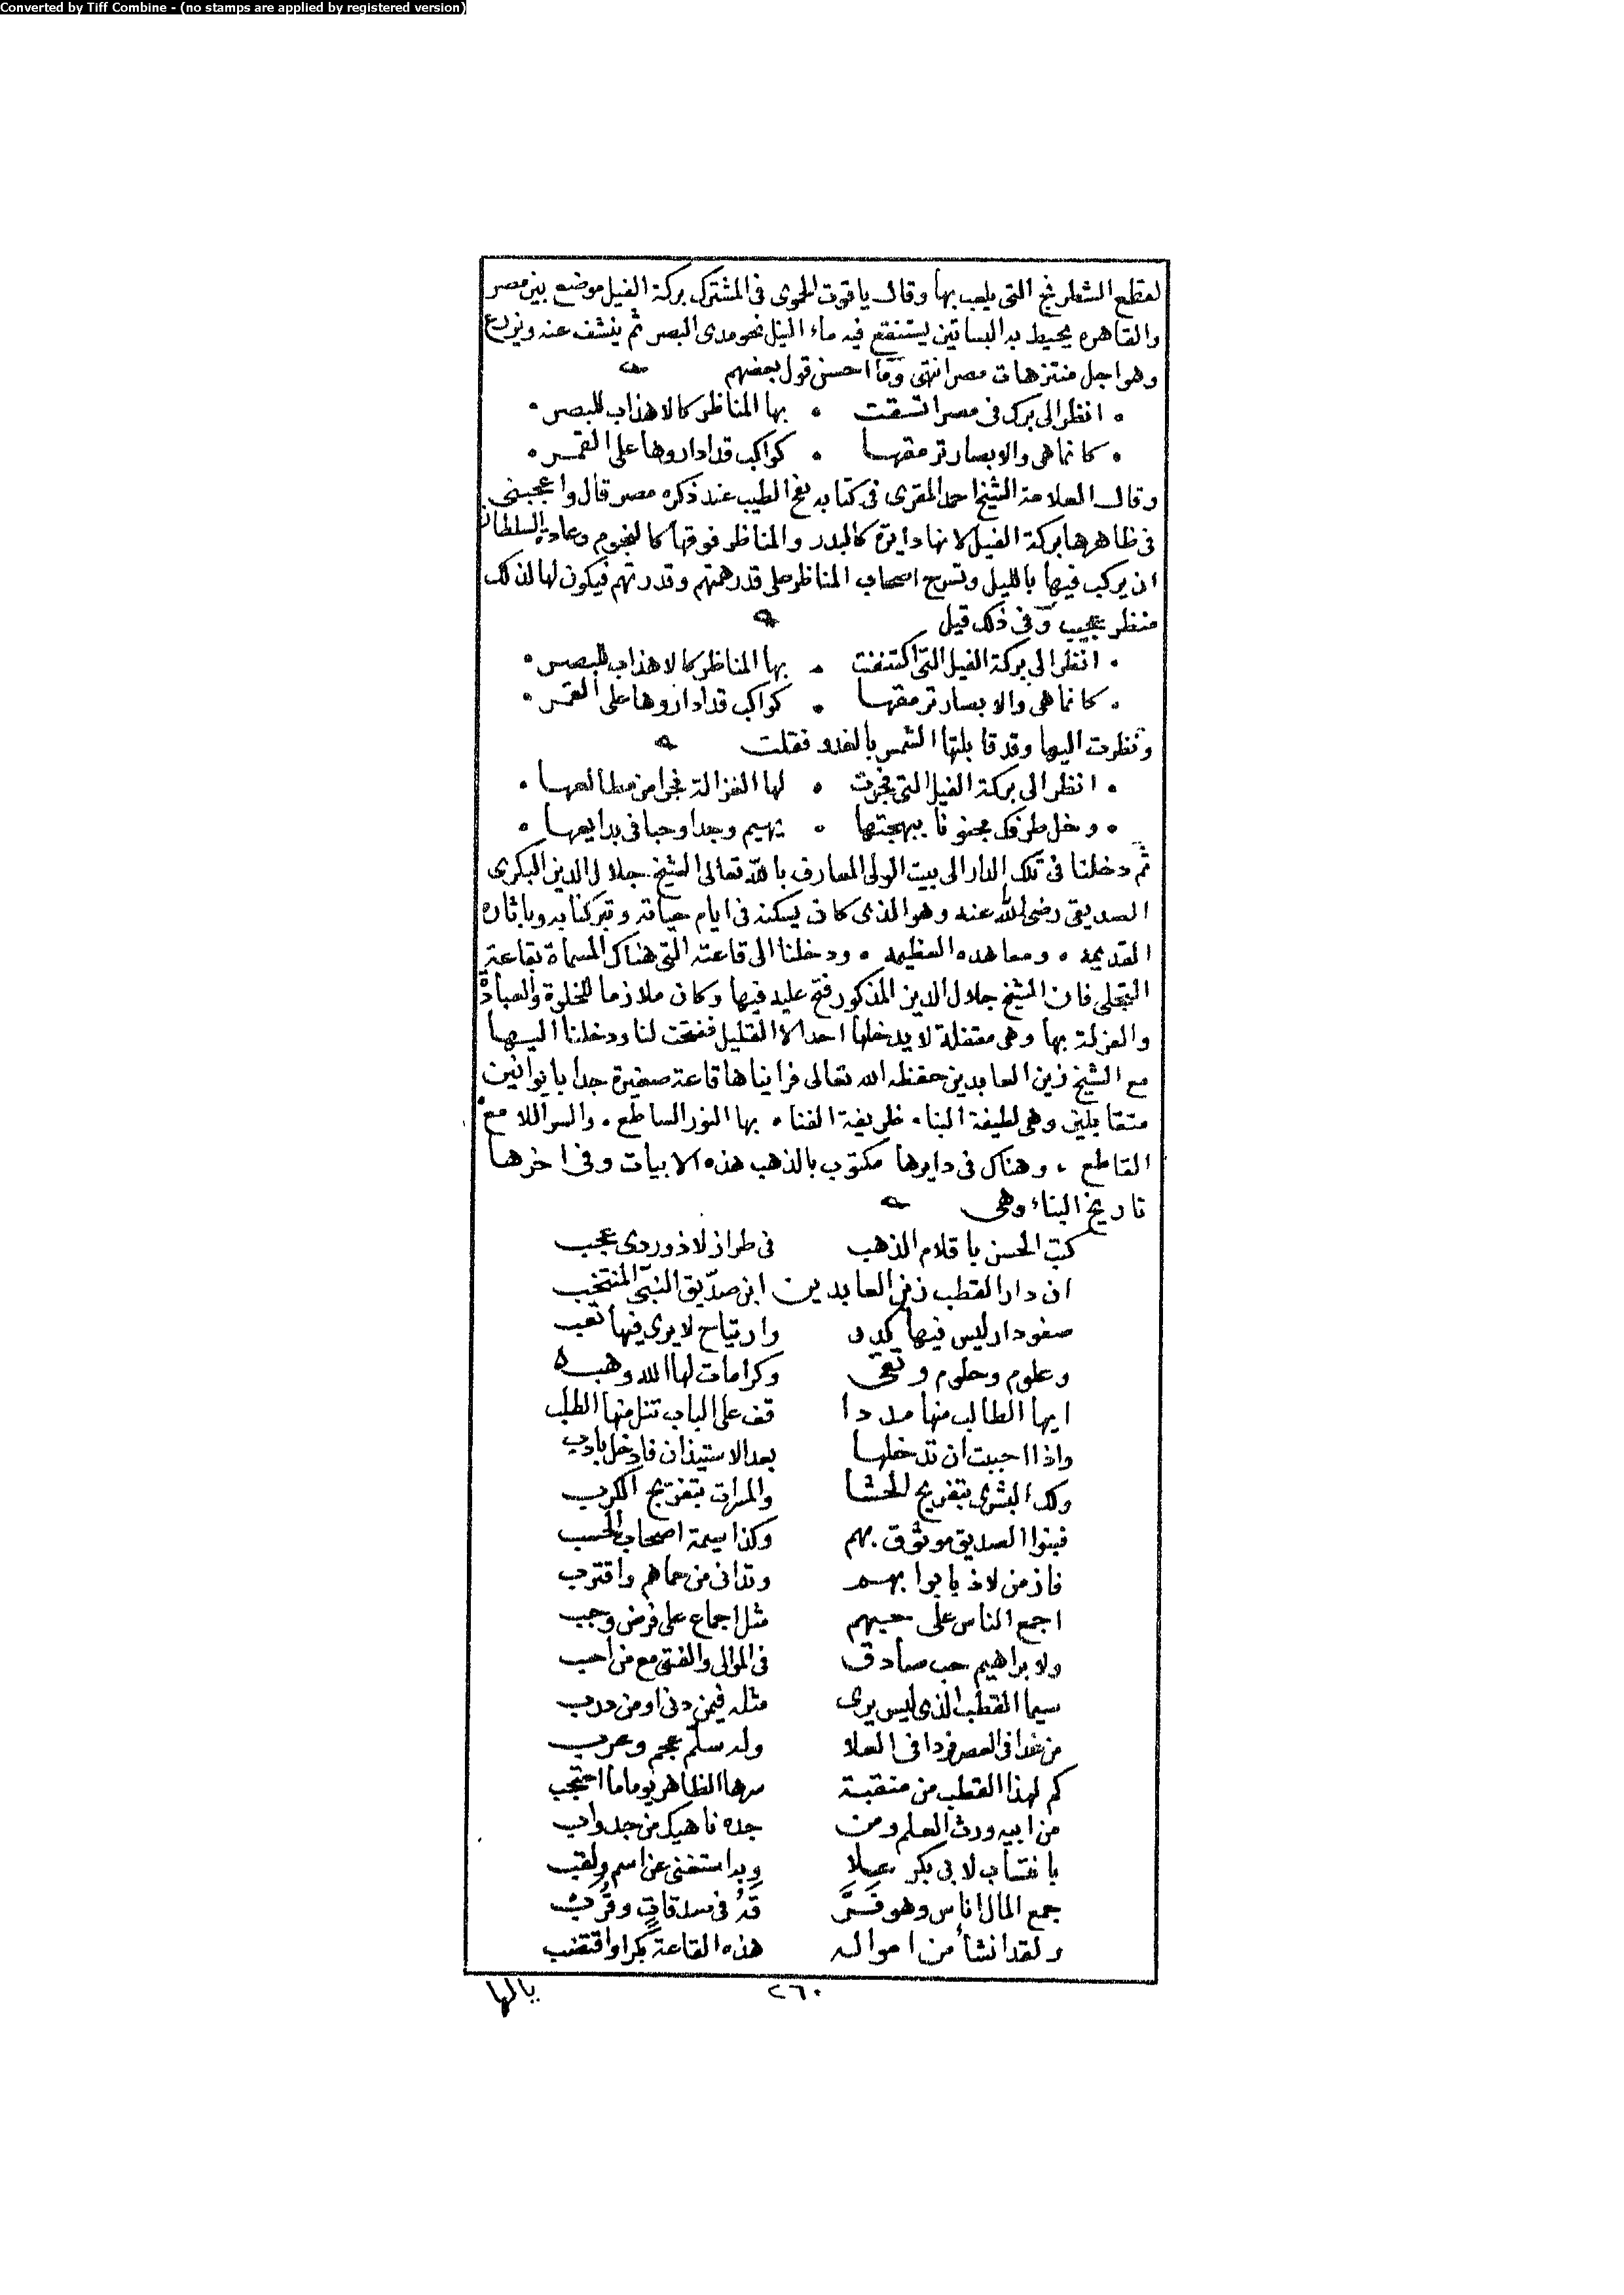 Converted by Tiff Combine - (no stamps are applied by registered version)
لقطع الشطرنج التى يلعب بها وقال ياقوت الحموى فى المشترك بركة الفيل موضع بين مصر
والقاهره يحيط به البساتين يستنقع فيه ماء النيل نحو مدى البصر ثم ينشف عنه ويزرع
وهو اجل منتزهات مصر انتهى وما احسن قول بعضهم
انظر الى برك فى مصر اتسقت • بها المناظر كالاهداب للبصر •
• كانما هى والابصار ترمقها • كواكب قد اداروها على القمر •
وقال العلامة الشيخ احمد المقرى فى كتابه نفح الطيب عند ذكره مصر قال واعجبنى
فى ظاهرها بركة الفيل لانها دايرة كالبدر والمناظر فوقها كالنجوم وعادة السلطان
ان يركب فيها بالليل وتسرج اصحاب المناظر على قدر همتهم وقدرتهم فيكون لها لذلك
منظر عجيب وفى ذلك قيل
• انظر الى بركة الفيل التى اكتنفت • بها المناظر كالاهداب للبصر •
• كانما هى والابصار ترمقها • كواكب قد اداروها على القمر •
ونظرت اليها وقد قابلتها الشمس بالغدو فقلت
• انظر الى بركة الفيل التى نحرت • لها الغزالة نحرا من مطالعها •
• وخل طرفك مجنونا ببهجتها • يهيم وجدا وحبا فى بدايعها •
ثم دخلنا فى تلك الدار الى بيت الولى العارف بالله تعالى الشيخ جلال الدين البكرى
الصديقى رضى الله عنه وهو الذى كان يسكنه فى ايام حياته وتبركنا به وباثاره
القديمه • ومعاهده العظيمه • ودخلنا الى قاعته التى هناك المسماة بقاعة
التجلى فان الشيخ جلال الدين المذكور فتح عليه فيها وكان ملازما للخلوة والعبادة
والعزلة بها وهى مقفلة لا يدخلها احد الا القليل ففتحت لنا ودخلنا اليها
مع الشيخ زين العابدين حفظه الله تعالى فرايناها قاعة صغيرة جدا بايوانين
متقابلين وهى لطيفة البنا • ظريفة الفنا • بها النور الساطع • والسر اللامع
القاطع • وهناك فى دايرها مكتوب بالذهب هذه الابيات وفى اخرها
تاريخ البناء وهى
كتب الحسن باقلام الذهب فى طراز لاذوردى عجب
ان دار القطب زين العابدين ابن صدّيق النبى المنتخب
صفو دار ليس فيها كدر وارتياح لا يرى فيها تعب
وعلوم وحلوم وتقى وكرامات لها الله وهب
ايها الطالب منها مددا قف على الباب تنل منها الطلب
واذا احببت ان تدخلها بعد الاستيذان فادخل بادب
ولك البشرى بتفريح الحشا والمسرات بتفريج الكرب
فبنوا الصديق موثوق بهم وكذا سيمة اصحاب الحسب
فاز من لاذ بابوابهم وتدانى من حماهم واقترب
اجمع الناس على حبهم مثل اجماع على فرض وجب
ولابراهيم حب صادق فى الموالى والفتى مع من احب
سيما القطب الذى ليس يرى مثله فيمن دنى او من درب
من غدا فى العصر فردا فى العلا وله سلّم عجم وعرب
كم لهذا القطب من منقبة سرها الظاهر يوما ما احتجب
من ابيه ورث العلم ومن جده ناهيك من جد واب
بانتساب لابى بكر علا وبه استغنى عن اسم ولقب
جمع المال اناس وهو فَرَّ قَهُ فى صدقاتٍ وقُرَب
ولقد انشأ من امواله هذه القاعة بكرا واقتضب
٢٦٠
يالها